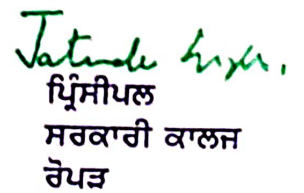 Jatinde Singh.
ਪ੍ਰਿੰਸੀਪਲ
ਸਰਕਾਰੀ ਕਾਲਜ
ਰੋਪੜ